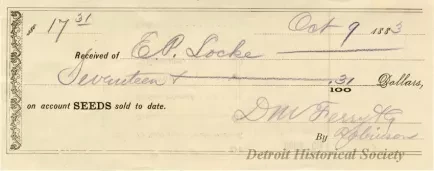 17 31
Oct 9 1883
Received of E.P. Locke
Seventeen + .31/100 Dollars,
on account SEEDS sold to date.
D M Ferry & Co
By Robinson
Detroit Historical Society